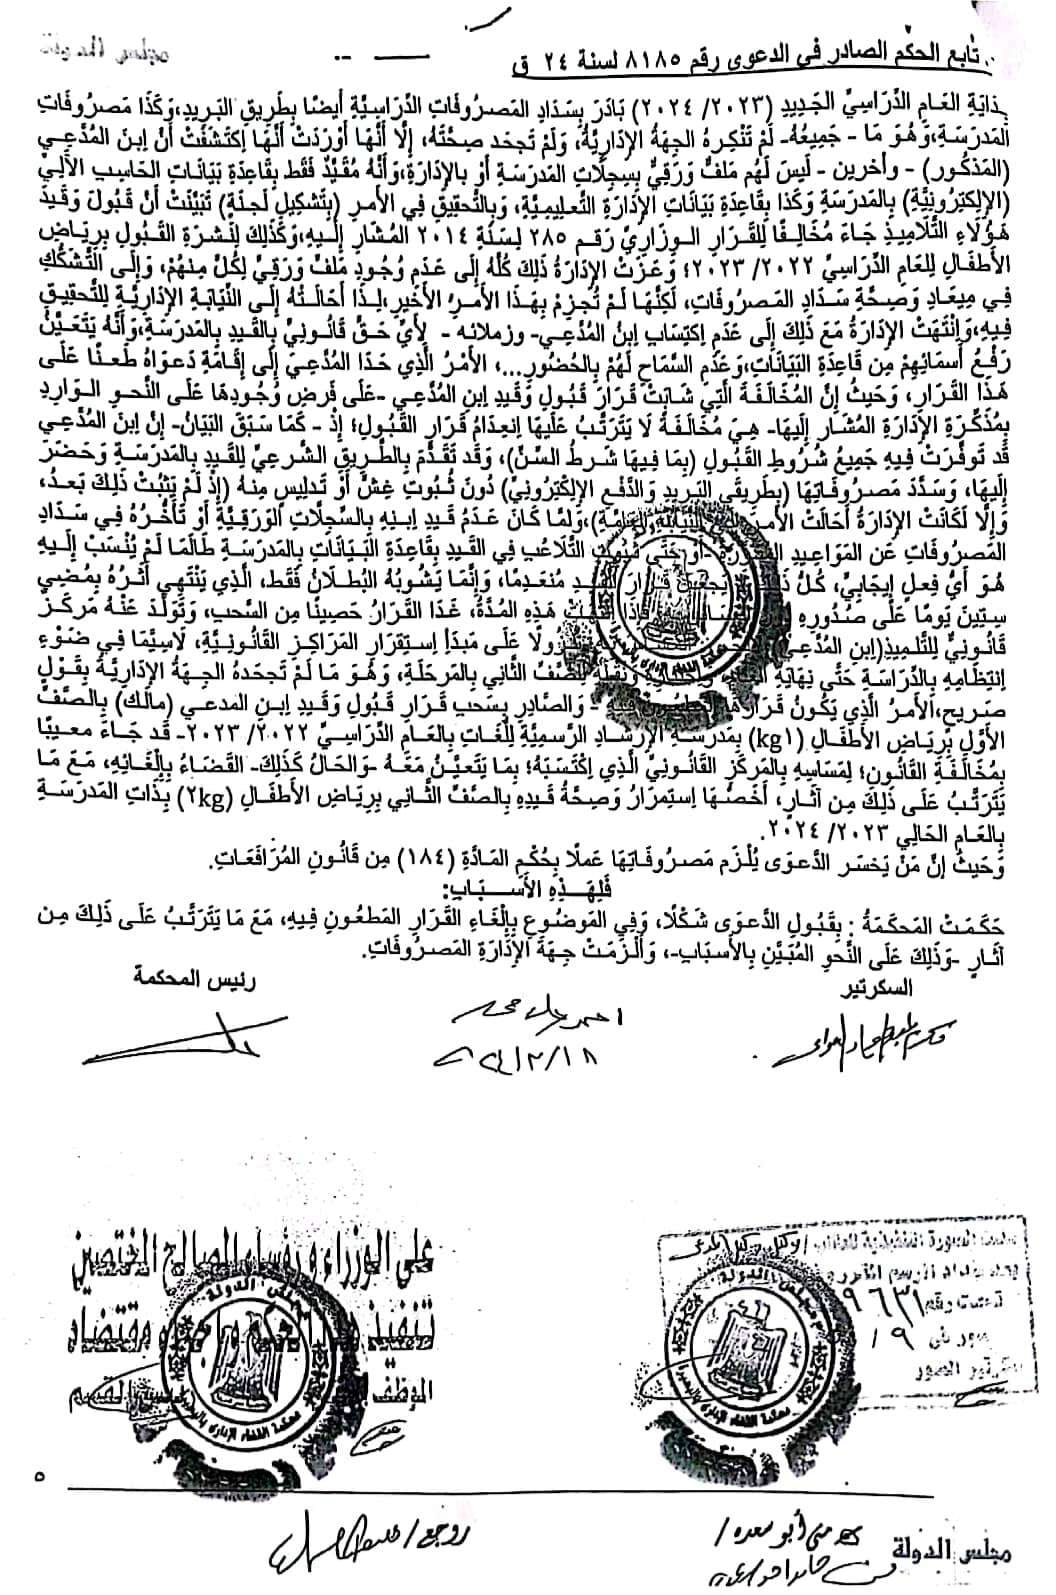 تابع الحكم الصادر في الدعوى رقم ٨١٨٥ لسنة ٢٤ ق
بِدَايَةِ العَامِ الدِّرَاسِيِّ الجَدِيدِ (٢٠٢٣/ ٢٠٢٤) بَادَرَ بِسَدَادِ المَصرُوفَاتِ الدِّرَاسِيَّةِ أيضًا بِطَرِيقِ البَرِيدِ، وَكَذَا مَصرُوفَاتِ
المَدرَسَةِ، وَهُوَ مَا - جَمِيعُهُ- لَمْ تُنْكِرهُ الجِهَةُ الإدَارِيَّةُ، وَلَمْ تَجحَد صِحَّتَهُ، إلَّا أنَّهَا أوْرَدَتْ أنَّهَا إكتَشَفَتْ أنَّ إبنَ المُدَّعِي
(المَذكُورِ) - وأخرين - لَيسَ لَهُم مَلفٌ وَرَقِيٌّ بِسِجِلَّاتِ المَدرَسَةِ أو بِالإدَارَةِ، وَأنَّهُ مُقَيَّدٌ فَقَط بِقَاعِدَةِ بَيَانَاتِ الحَاسِبِ الألِيِّ
(الإلِكتِرُونِيَّةِ) بِالمَدرَسَةِ وَكَذَا بِقَاعِدَةِ بَيَانَاتِ الإدَارَةِ التَّعلِيمِيَّةِ، وَبِالتَّحقِيقِ فِي الأمرِ (بِتَشكِيلِ لَجنَةٍ) تَبَيَّنَتْ أنَّ قُبُولَ وَقَيدَ
هَؤُلَاءِ التَّلَامِيذِ جَاءَ مُخَالِفًا لِلقَرَارِ الوِزَارِيِّ رَقمِ ٢٨٥ لِسَنَةِ ٢٠١٤ المُشَارِ إلَيهِ، وَكَذَلِكَ لِنَشرَةِ القَبُولِ بِرِيَاضِ
الأطفَالِ لِلعَامِ الدِّرَاسِيِّ ٢٠٢٢/ ٢٠٢٣؛ وَعَزَتْ الإدَارَةُ ذَلِكَ كُلَّهُ إلَى عَدَمِ وُجُودِ مَلفٍّ وَرَقِيٍّ لِكُلٍّ مِنهُمْ، وَإلَى التَّشَكُّكِ
فِي مِيعَادِ وَصِحَّةِ سَدَادِ المَصرُوفَاتِ، لَكِنَّهَا لَمْ تُجزِمْ بِهَذَا الأمرِ الأخِيرِ، لِذَا أحَالَتْهُ إلَى النِّيَابَةِ الإدَارِيَّةِ لِلتَّحقِيقِ
فِيهِ، وَإنتَهَتْ الإدَارَةُ مَعَ ذَلِكَ إلَى عَدَمِ إكتِسَابِ إبنِ المُدَّعِي- وزملائه - لِأيِّ حَقٍّ قَانُونِيٍّ بِالقَيدِ بِالمَدرَسَةِ، وَأنَّهُ يَتَعَيَّنُ
رَفعُ أسمَائِهِم مِن قَاعِدَةِ البَيَانَاتِ، وَعَدَمِ السَّمَاحِ لَهُمْ بِالحُضُورِ...، الأمرُ الَّذِي حَدَا المُدَّعِيَ إلَى إقَامَةِ دَعوَاهُ طَعنًا عَلَى
هَذَا القَرَارِ، وَحَيثُ إنَّ المُخَالَفَةَ الَّتِي شَابَتْ قَرَارَ قُبُولِ وَقَيدِ إبنِ المُدَّعِي -عَلَى فَرضِ وُجُودِهَا عَلَى النَّحوِ الوَارِدِ
بِمُذَكِّرَةِ الإدَارَةِ المُشَارِ إلَيهَا- هِيَ مُخَالَفَةٌ لَا يَتَرَتَّبُ عَلَيهَا إنعِدَامُ قَرَارِ القَبُولِ؛ إذْ - كَمَا سَبَقَ البَيَانُ- إنَّ إبنَ المُدَّعِي
قَد تَوَفَّرَتْ فِيهِ جَمِيعُ شُرُوطِ القَبُولِ (بِمَا فِيهَا شَرطُ السِّنِّ)، وَقَد تَقَدَّمَ بِالطَّرِيقِ الشَّرعِيِّ لِلقَيدِ بِالمَدرَسَةِ وَحَضَرَ
إلَيهَا، وَسَدَّدَ مَصرُوفَاتِهَا (بِطَرِيقَي البَرِيدِ وَالدَّفعِ الإلِكتِرُونِيِّ) دُونَ ثُبُوتِ غِشٍّ أوْ تَدلِيسٍ مِنهُ (إذْ لَمْ يَثبُتْ ذَلِكَ بَعدُ،
وَإلَّا لَكَانَتْ الإدَارَةُ أحَالَتْ الأمرَ إلَى النِّيَابَةِ العَامَّةِ)، وَلَمَّا كَانَ عَدَمُ قَيدِ إبنِهِ بِالسِّجِلَّاتِ الوَرَقِيَّةِ أوْ تَأَخُّرُهُ فِي سَدَادِ
المَصرُوفَاتِ عَنِ المَوَاعِيدِ أو حَتَّى التَّلَاعُبُ فِي القَيدِ بِقَاعِدَةِ البَيَانَاتِ بِالمَدرَسَةِ طَالَمَا لَمْ يُنْسَبْ إلَيهِ
هُوَ أيُّ فِعلٍ إيجَابِيٍّ، كُلُّ يَجعَلُ قَرَارَ مُنعَدِمًا، وَإنَّمَا يَشُوبُهُ البُطلَانُ فَقَط، الَّذِي يَنْتَهِي أثَرُهُ بِمُضِيِّ
سِتِّينَ يَومًا عَلَى صُدُورِهِ هَذِهِ المُدَّةُ، غَدَا القَرَارُ حَصِينًا مِنَ السَّحبِ، وَتَوَلَّدَ عَنهُ مَركَزٌ
قَانُونِيٌّ لِلتِّلمِيذِ(إبنِ المُدَّعِي) نُزُولًا عَلَى مَبدَأ إستِقرَارِ المَرَاكِزِ القَانُونِيَّةِ، لَاسِيَّمَا فِي ضَوْءِ
إنتِظَامِهِ بِالدِّرَاسَةِ حَتَّى نِهَايَةِ العَامِ وَنَقلِهِ لِلصَّفِّ الثَّانِي بِالمَرحَلَةِ، وَهُوَ مَا لَمْ تَجحَدهُ الجِهَةُ الإدَارِيَّةُ بِقَولٍ
صَرِيحٍ، الأمرُ الَّذِي يَكُونُ قَرَارُهَا المَطعُونُ فِيهِ - وَالصَّادِرُ بِسَحبِ قَرَارِ قُبُولِ وَقَيدِ إبنِ المدعي (مالك) بِالصَّفِّ
الأوَّلِ بِرِيَاضِ الأطفَالِ (kg١) بِمَدرَسَةِ الإرشَادِ الرَّسمِيَّةِ لِلُّغَاتِ بِالعَامِ الدِّرَاسِيِّ ٢٠٢٢/ ٢٠٢٣- قَد جَاءَ مَعِيبًا
بِمُخَالَفَةِ القَانُونِ؛ لِمَسَاسِهِ بِالمَركَزِ القَانُونِيِّ الَّذِي إكتَسَبَهُ؛ بِمَا يَتَعَيَّنُ مَعَهُ -وَالحَالُ كَذَلِكَ- القَضَاءُ بِإلغَائِهِ، مَعَ مَا
يَتَرَتَّبُ عَلَى ذَلِكَ مِن آثَارٍ، أخَصُّهَا إستِمرَارُ وَصِحَّةُ قَيدِهِ بِالصَّفِّ الثَّانِي بِرِيَاضِ الأطفَالِ (kg٢) بِذَاتِ المَدرَسَةِ
بِالعَامِ الحَالِي ٢٠٢٣/ ٢٠٢٤.
وَحَيثُ إنَّ مَنْ يَخسَر الدَّعوَى يُلْزَم مَصرُوفَاتِهَا عَملًا بِحُكمِ المَادَّةِ (١٨٤) مِن قَانُونِ المُرَافَعَاتِ.
فَلِهَذِهِ الأَسبَابِ:
حَكَمَتْ المَحكَمَةُ : بِقَبُولِ الدَّعوَى شَكْلًا، وَفِي المَوضُوعِ بِإلغَاءِ القَرَارِ المَطعُونِ فِيهِ، مَعَ مَا يَتَرَتَّبُ عَلَى ذَلِكَ مِن
آثَارٍ -وَذَلِكَ عَلَى النَّحوِ المُبَيَّنِ بِالأسبَابِ-، وَألزَمَتْ جِهَةَ الإدَارَةِ المَصرُوفَاتِ.
السكرتير
رئيس المحكمة
على الوزراء ورؤساء المصالح المختصين
تنفيذ هذا الحكم وإجراء مقتضاه
مجلس الدولة
محكمة القضاء الإدارى
٩٦٣١
٥
مجلس الدولة